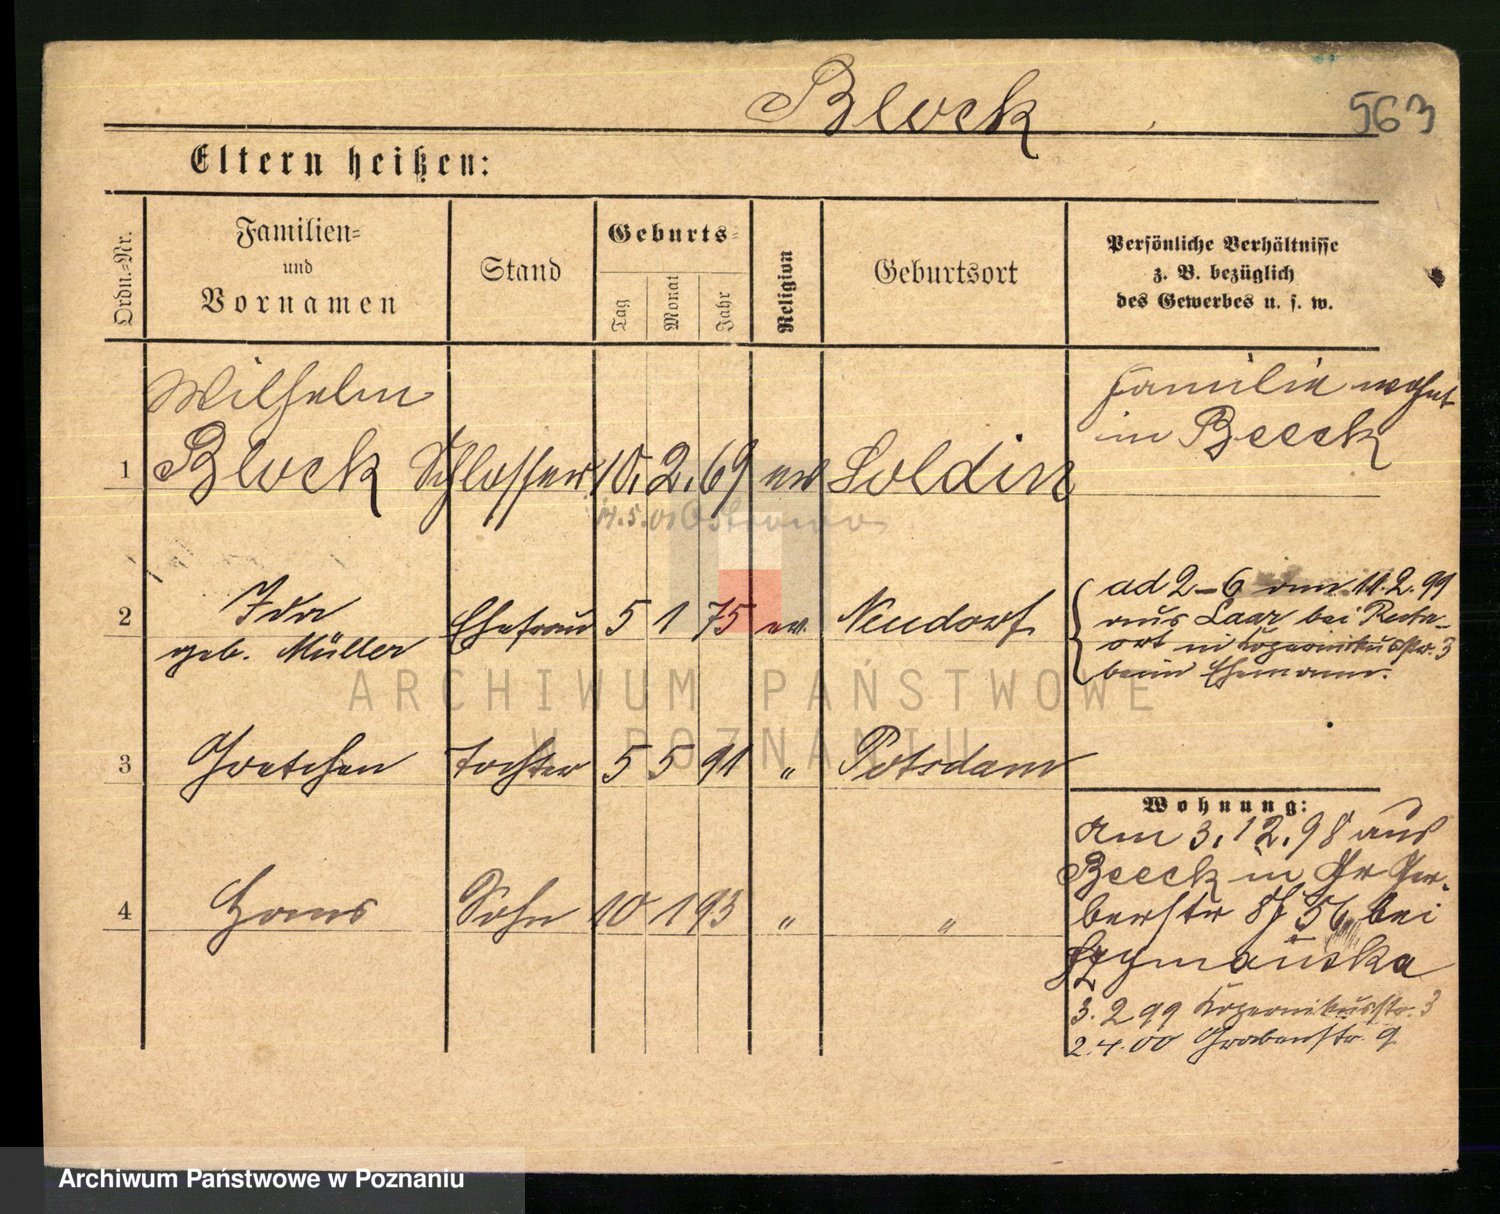 Block
563
Eltern heißen:
Ordn.-Nr.
Familien-
und
Vornamen
Stand
Geburts-
Tag
Monat
Jahr
Religion
Geburtsort
Persönliche Verhältnisse
z. B. bezüglich
des Gewerbes u. s. w.
Wilhelm
1 Block Schlosser 10. 2. 69 ev Soldin
Familie wohnt
in Beeck
14.5.01 Ostrowo
2 Ida Ehefrau 5 1 75 ev. Neudorf
geb. Müller
ad 2-6 am 11.2.99
aus Laar bei Ruhr-
ort in Kopernikusstr. 3
beim Ehemann.
3 Gretchen Tochter 5 5 91 " Potsdam
4 Hans Sohn 10 1 93 " "
Wohnung:
Am 3.12.98 aus
Beeck in Gr Ger-
berstr 56 bei
Szymańska
3.2 99 Kopernikusstr. 3
2.4.00 Grabenstr. 9
ARCHIWUM PAŃSTWOWE
W POZNANIU
Archiwum Państwowe w Poznaniu